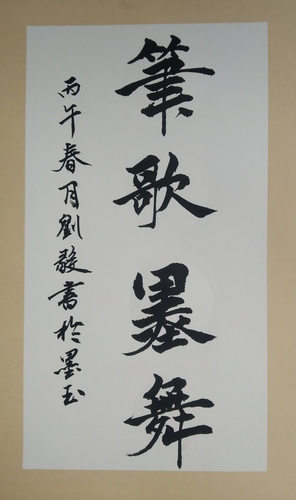 筆歌墨舞
丙午春月劉毅書於墨玉